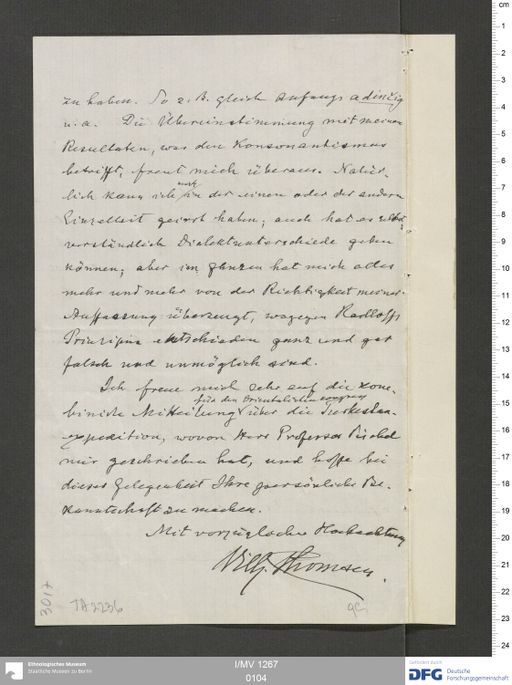 zu haben. So z. B. gleich anfangs adinčig
u. a. Die Übereinstimmung mit meinen
Resultaten, was den Konsonantismus
betrifft, freut mich überaus. Natür-
lich kann ich mich in der einen oder der andern
Einzelheit geirrt haben; auch hat es selbst-
verständlich Dialektunterschiede geben
können; aber im ganzen hat mich alles
mehr und mehr von der Richtigkeit meiner
Auffassung überzeugt, wogegen Radloffs
Prinzipien entschieden ganz und gar
falsch und unmöglich sind.
Ich freue mich sehr auf die kom-
binierte Mitteilung für den Orientalistencongress über die Turkestan-
expedition, wovon Herr Professor Pischel
mir geschrieben hat, und hoffe bei
dieser Gelegenheit Ihre persönliche Be-
kanntschaft zu machen.
Mit vorzüglicher Hochachtung
Vilh. Thomsen.
3017
TA 2236
I/MV 1267
0104
Ethnologisches Museum
Staatliche Museen zu Berlin
Gefördert durch
DFG
Deutsche
Forschungsgemeinschaft
cm
1
2
3
4
5
6
7
8
9
10
11
12
13
14
15
16
17
18
19
20
21
22
23
24